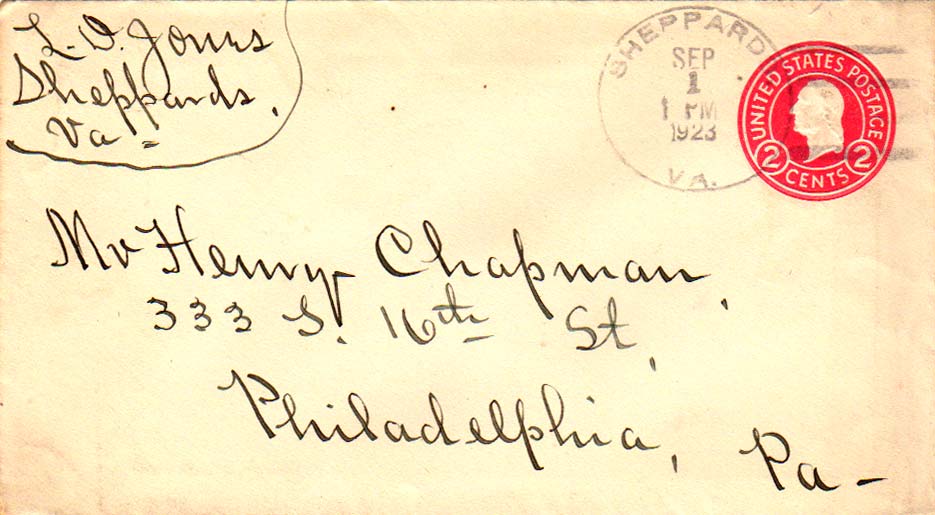 L. D. Jones
Sheppards,
Va =
SHEPPARDS
SEP
1
1 PM
1923
VA.
UNITED STATES POSTAGE
2 CENTS 2
Mr Henry Chapman,
333 S. 16th St,
Philadelphia, Pa -